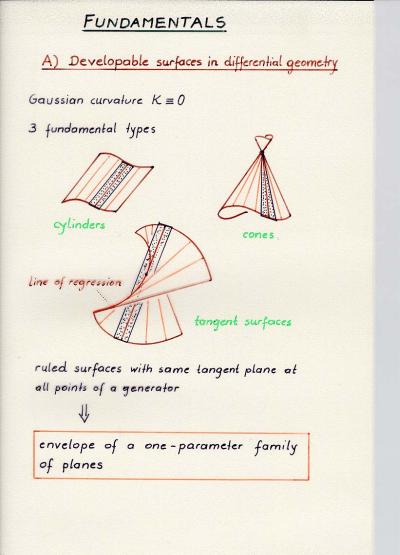 FUNDAMENTALS
A) Developable surfaces in differential geometry
Gaussian curvature K ≡ 0
3 fundamental types
cylinders
cones
line of regression
tangent surfaces
ruled surfaces with same tangent plane at
all points of a generator
⇓
envelope of a one-parameter family
of planes